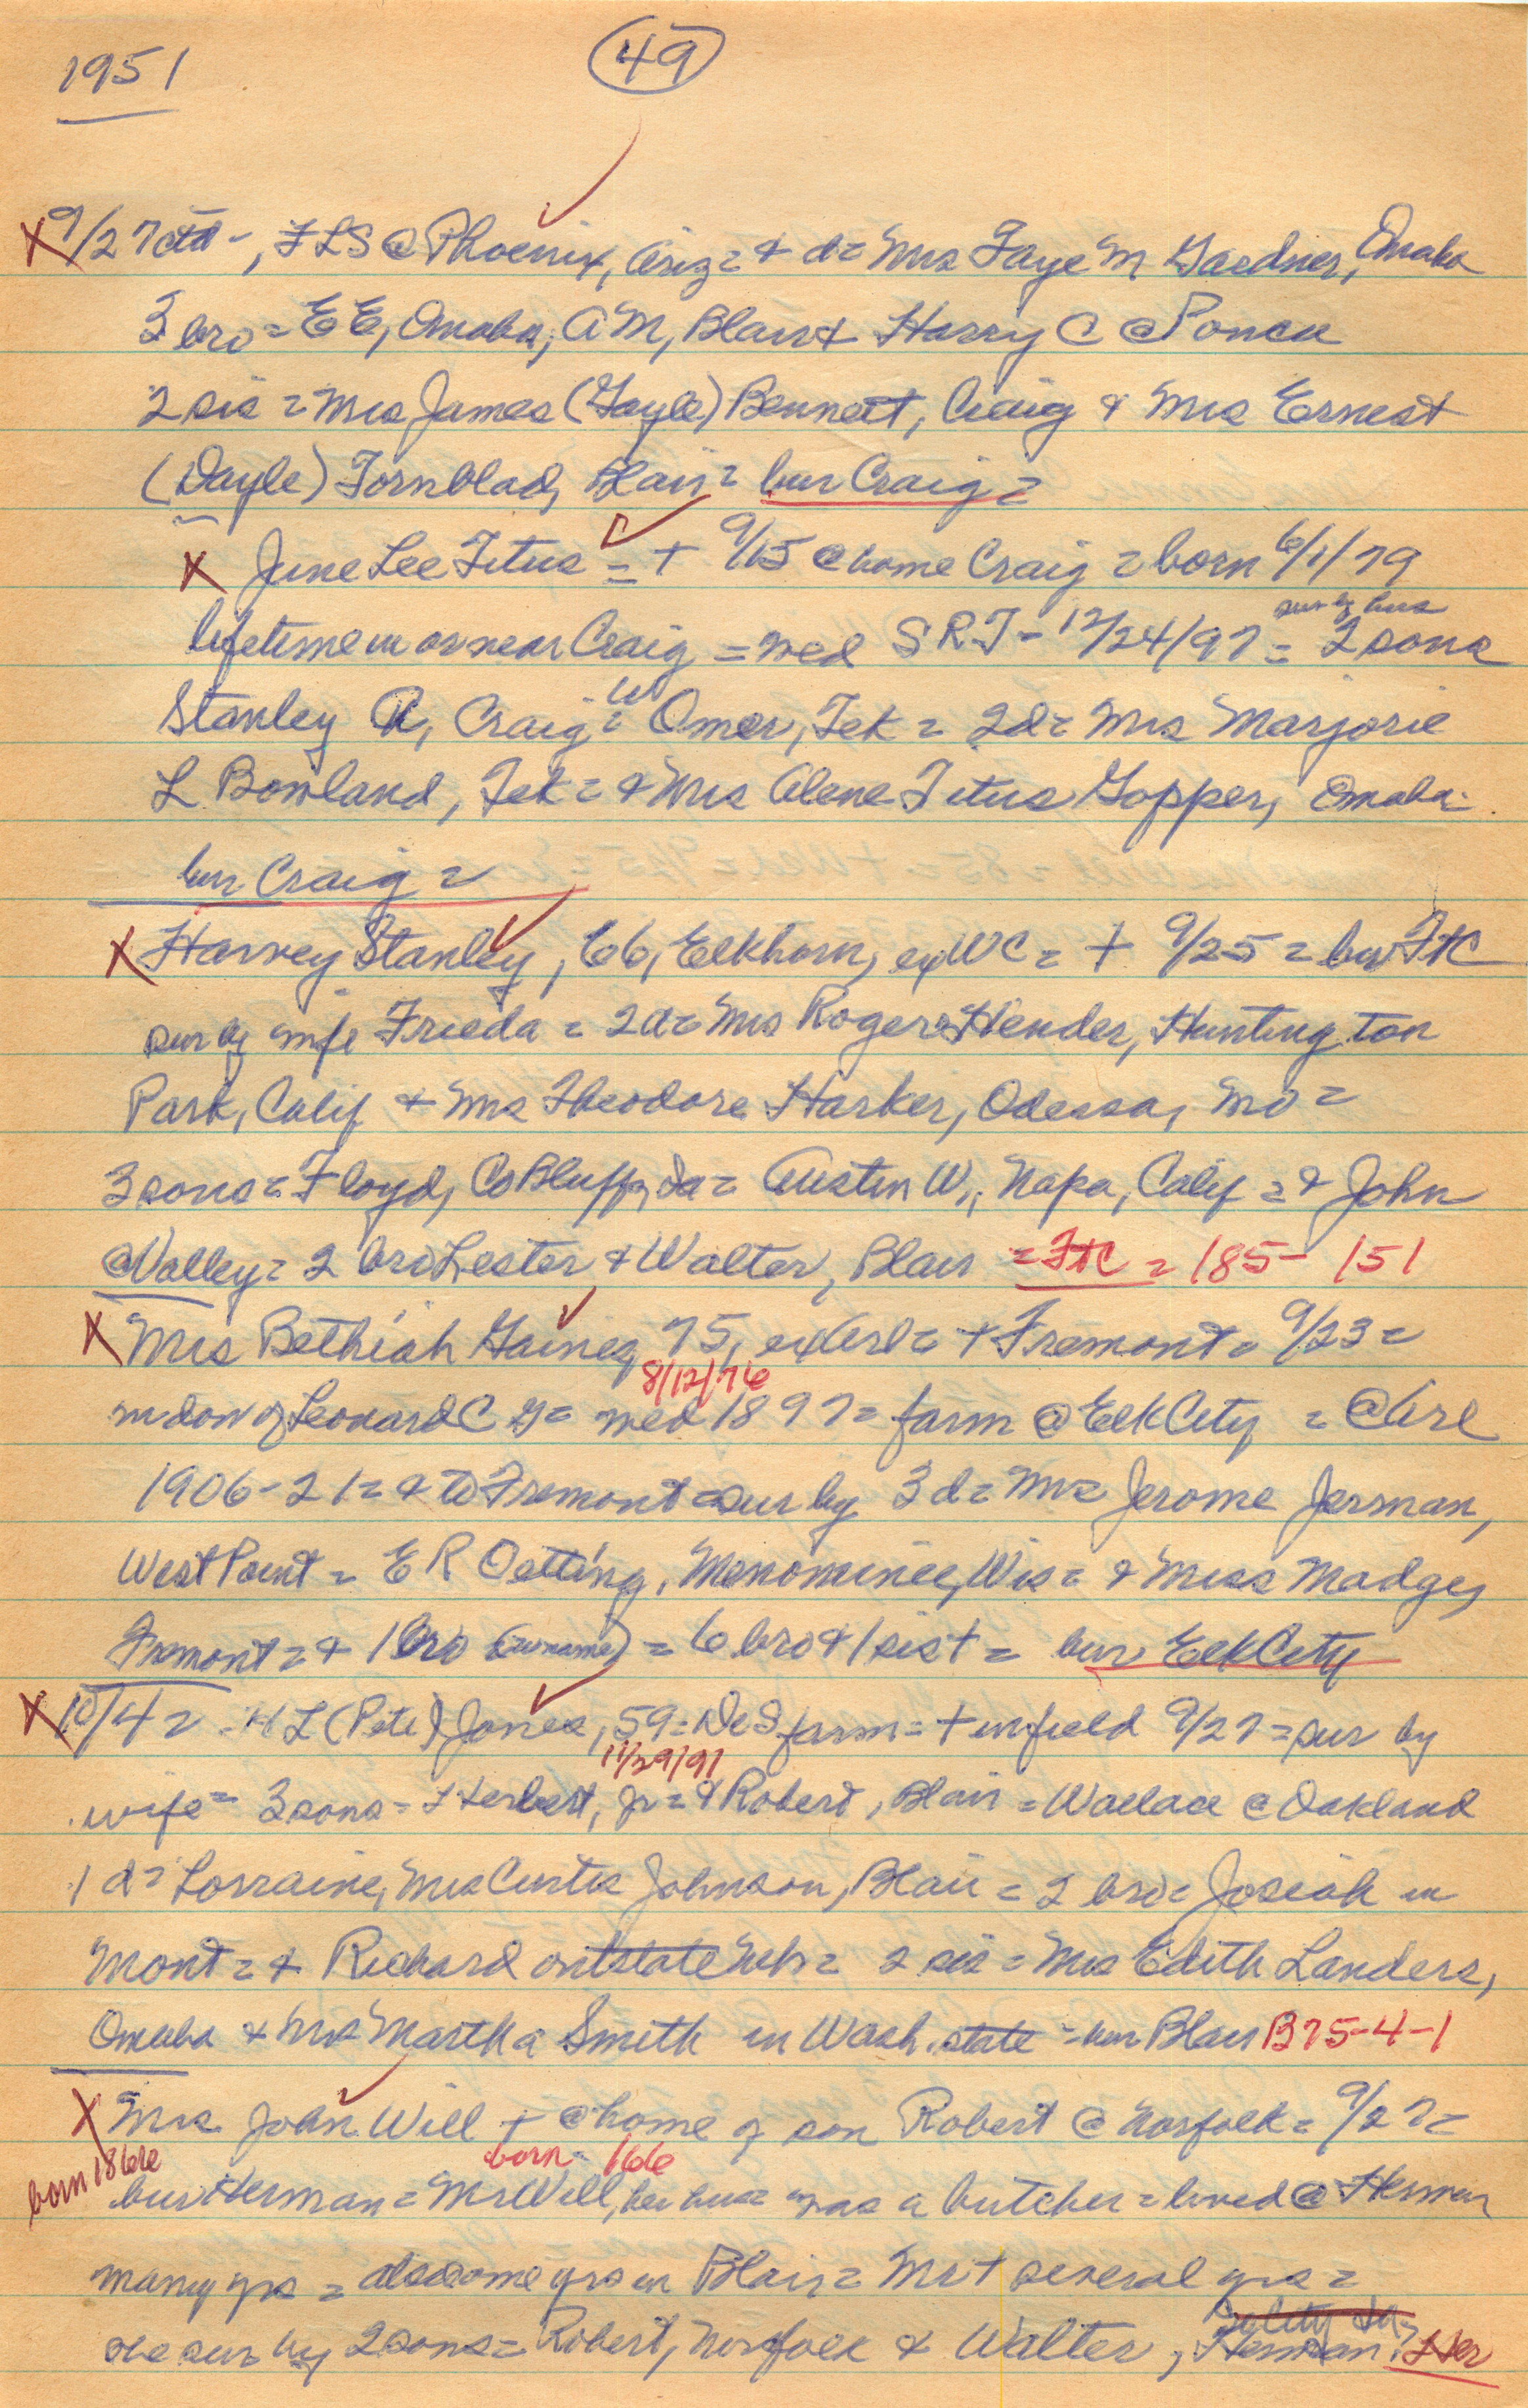 1951
49
X 9/27 ctd -, FLS @ Phoenix, Ariz = & d = Mrs Faye M Gardner, Omaha
3 bro = EE, Omaha, AM, Blair & Harry C @ Ponca
2 sis = Mrs James (Gayle) Bennett, Craig & Mrs Ernest
(Dayle) Tornblad, Blair = bur Craig =
X June Lee Titus = + 9/15 @ home Craig = born 6/1/79
sur by hus
lifetime in or near Craig = wed SRT - 12/24/97 = 2 sons
Stanley R, Craig = W Omer, Tek = 2d = Mrs Marjorie
L Bowland, Tek = & Mrs Alene Titus Gopper, Omaha
bur Craig =
X Harvey Stanley, 66, Elkhorn, ex WC = + 9/25 = bur FtC
sur by wife Frieda = 2d = Mrs Roger Hender, Huntington
Park, Calif & Mrs Theodore Harker, Odessa, Mo =
3 sons = Floyd, Co Bluffs, Ia = Austin W., Napa, Calif = & John
@ Valley = 2 bro Lester & Walter, Blair = FtC = 185 - 151
X Mrs Bethiah Gaines, 75, ex Arl = + Fremont = 9/23 =
8/12/76
widow of Leonard C G = wed 1897 = farm @ Elk City = @ Arl
1906-21 = & to Fremont = sur by 3 d = Mrs Jerome Jerman,
West Point = E R Oetting, Menominee, Wis = & Miss Madge,
Fremont = & 1 bro (no name) = 6 bro & 1 sis + = bur Elk City
X 10/4 = H L (Pete) Jones, 59 = DeS farm = + in field 9/27 = sur by
11/29/91
wife = 3 sons = Herbert, Jr = & Robert, Blair = Wallace @ Oakland
1 d = Lorraine, Mrs Curtis Johnson, Blair = 2 bro = Josiah in
Mont = & Richard outstate Neb = 2 sis = Mrs Edith Landers,
Omaha & Mrs Martha Smith in Wash. state = bur Blair B75-4-1
X Mrs John Will + @ home of son Robert @ Norfolk = 9/27 =
born 1866
born - 166
bur Herman = Mr Will, her hus = was a butcher = lived @ Herman
many yrs = also some yrs in Blair = Mr + several yrs =
she sur by 2 sons = Robert, Norfolk & Walter, Herman? Her